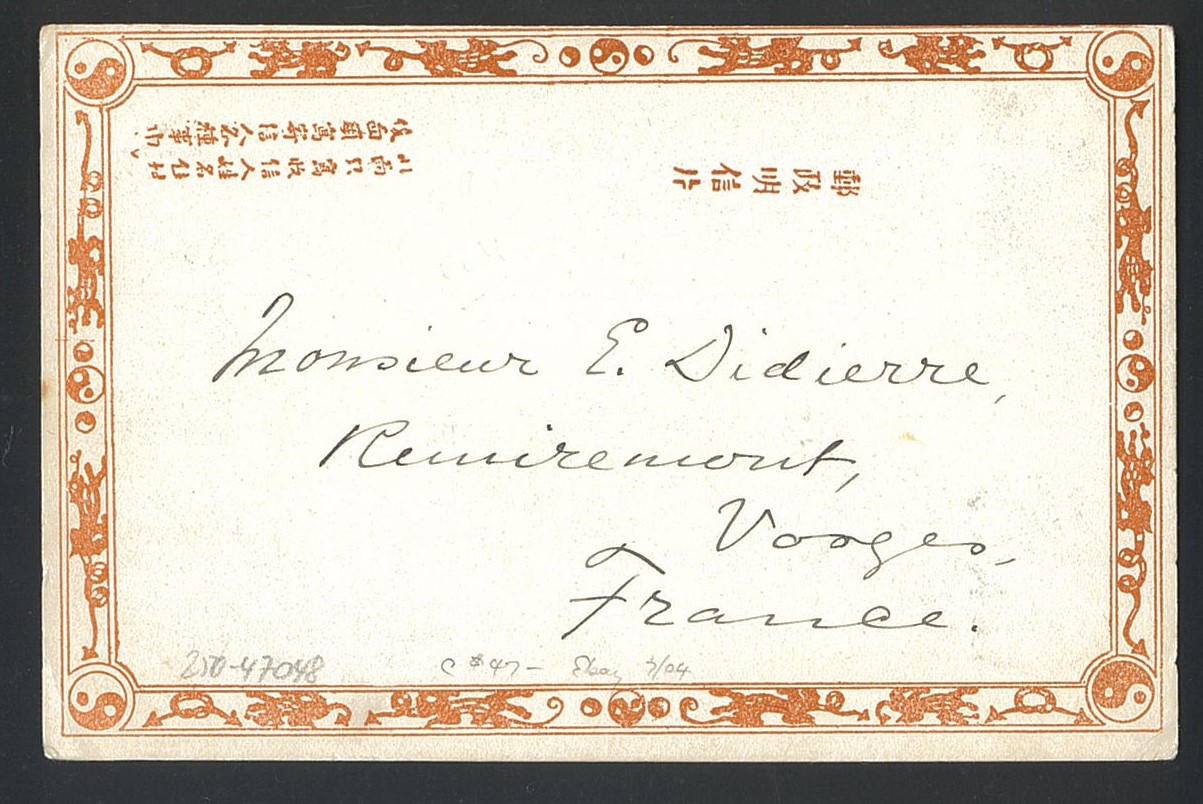 郵政明信片
此面只寫收信人姓名住址
後面寫寄信人各種事
Monsieur E. Didierre,
Remiremont,
Vosges,
France.
250-47048 C $47- Ebay 3/04